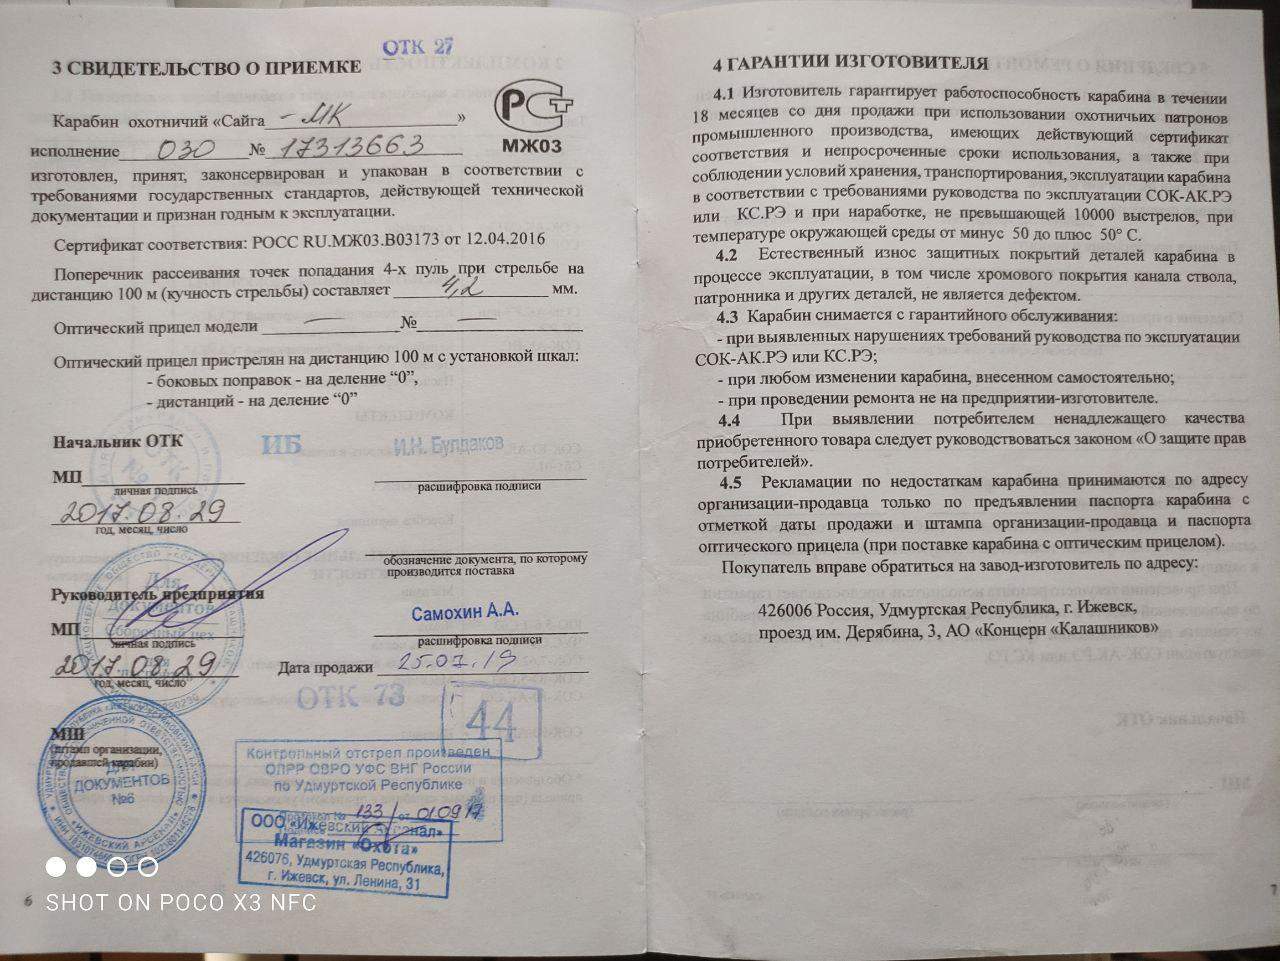 ОТК 27
3 СВИДЕТЕЛЬСТВО О ПРИЕМКЕ
РСТ
МЖ03
Карабин охотничий «Сайга - МК »
исполнение 030 № 17313663
изготовлен, принят, законсервирован и упакован в соответствии с
требованиями государственных стандартов, действующей технической
документации и признан годным к эксплуатации.
Сертификат соответствия: РОСС RU.МЖ03.В03173 от 12.04.2016
Поперечник рассеивания точек попадания 4-х пуль при стрельбе на
дистанцию 100 м (кучность стрельбы) составляет 4,2 мм.
Оптический прицел модели — № —
Оптический прицел пристрелян на дистанцию 100 м с установкой шкал:
- боковых поправок - на деление “0”,
- дистанций - на деление “0”
Начальник ОТК ИБ И.Н. Булдаков
МП
личная подпись расшифровка подписи
ОТК
2017.08.29
год, месяц, число
обозначение документа, по которому
производится поставка
Руководитель предприятия
Для
документов
Сборочный цех
МП Самохин А.А.
личная подпись расшифровка подписи
2017.08.29 Дата продажи 25.07.19
год, месяц, число
ОТК 73
44
МШ
(штамп организации,
продавшей карабин)
ДЛЯ
ДОКУМЕНТОВ
№6
«ИЖЕВСКИЙ АРСЕНАЛ»
Контрольный отстрел произведен
ОЛРР ОВРО УФС ВНГ России
по Удмуртской Республике
Протокол № 133 от 01.09.17
ООО «Ижевский Арсенал»
Магазин «Охота»
426076, Удмуртская Республика,
г. Ижевск, ул. Ленина, 31
SHOT ON POCO X3 NFC
6
4 ГАРАНТИИ ИЗГОТОВИТЕЛЯ
4.1 Изготовитель гарантирует работоспособность карабина в течении
18 месяцев со дня продажи при использовании охотничьих патронов
промышленного производства, имеющих действующий сертификат
соответствия и непросроченные сроки использования, а также при
соблюдении условий хранения, транспортирования, эксплуатации карабина
в соответствии с требованиями руководства по эксплуатации СОК-АК.РЭ
или КС.РЭ и при наработке, не превышающей 10000 выстрелов, при
температуре окружающей среды от минус 50 до плюс 50° С.
4.2 Естественный износ защитных покрытий деталей карабина в
процессе эксплуатации, в том числе хромового покрытия канала ствола,
патронника и других деталей, не является дефектом.
4.3 Карабин снимается с гарантийного обслуживания:
- при выявленных нарушениях требований руководства по эксплуатации
СОК-АК.РЭ или КС.РЭ;
- при любом изменении карабина, внесенном самостоятельно;
- при проведении ремонта не на предприятии-изготовителе.
4.4 При выявлении потребителем ненадлежащего качества
приобретенного товара следует руководствоваться законом «О защите прав
потребителей».
4.5 Рекламации по недостаткам карабина принимаются по адресу
организации-продавца только по предъявлении паспорта карабина с
отметкой даты продажи и штампа организации-продавца и паспорта
оптического прицела (при поставке карабина с оптическим прицелом).
Покупатель вправе обратиться на завод-изготовитель по адресу:
426006 Россия, Удмуртская Республика, г. Ижевск,
проезд им. Дерябина, 3, АО «Концерн «Калашников»
7